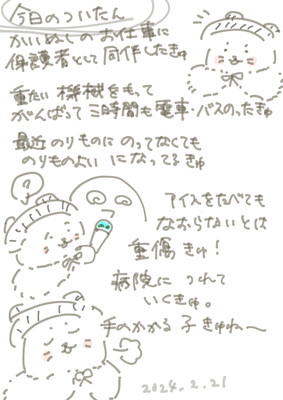 今日のついたん
かいぬしの お仕事に
保護者として 同伴したきゅ
重たい 機械をもって
がんばって 三時間も 電車・バスのったきゅ
最近 のりものに のってなくても
のりものよい になってるきゅ
?
アイスをたべても
なおらないとは
重傷 きゅ!
病院に つれて
いくきゅ。
手のかかる 子 きゅね〜
2024.2.21